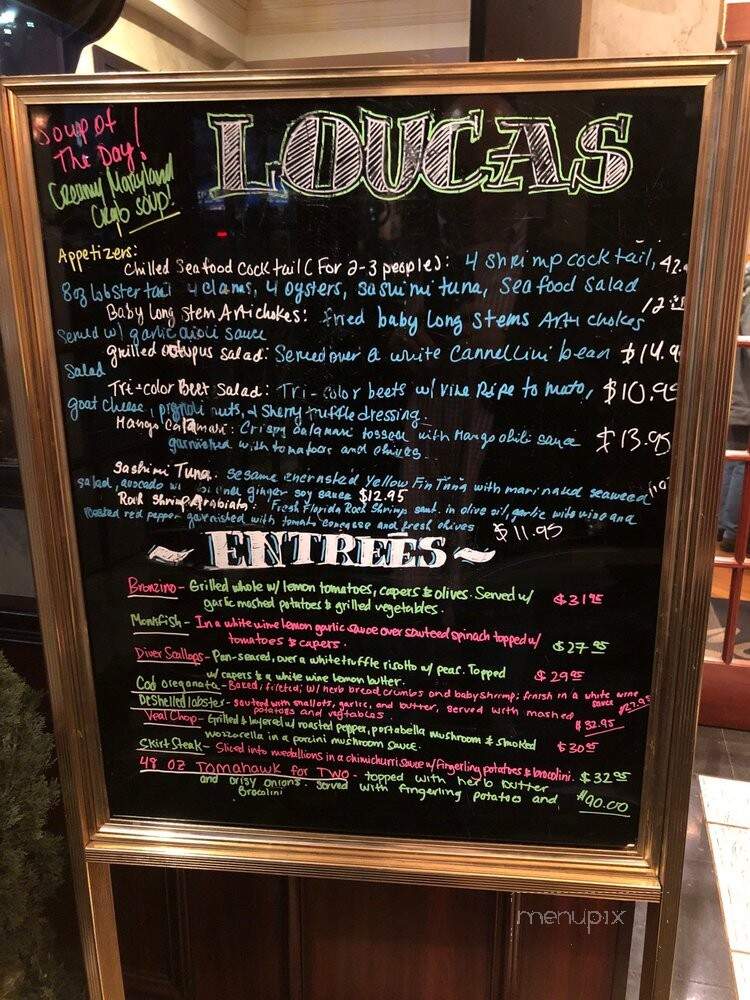 Soup of
The Day!
Creamy Maryland
Crab SOUP!
LOUCAS
Appetizers:
Chilled Seafood Cocktail (For 2-3 people): 4 shrimp cocktail, 42.
8oz lobster tail 4 clams, 4 oysters, sashimi tuna, seafood salad
Baby Long Stem Artichokes: fried baby Long Stems Arti chokes 12
Served w/ garlic aioli sauce
grilled octupus salad: Served over a white Cannellini bean $14.9
Salad
Tri-color Beet Salad: Tri-color beets w/ Vine Ripe to mato, $10.95
goat cheese, pignoli nuts, & sherry truffle dressing.
Mango Calamari: Crispy calamari tossed with Mango chili sauce $13.95
garnished with tomatoes and chives.
Sashimi Tuna: Sesame encrusted Yellow Fin Tuna with marinated seaweed
salad, avocado w/ ginger soy sauce $12.95
Rock Shrimp Arabiata: Fresh Florida Rock Shrimp saut. in olive oil, garlic white wine and
roasted red pepper garnished with tomato concasse and fresh chives $11.95
~ ENTREES ~
Bronzino - Grilled whole w/ lemon tomatoes, capers & olives. Served w/ $31.95
garlic mashed potatoes & grilled vegetables.
Monkfish - In a white wine lemon garlic sauce over sauteed spinach topped w/ $27.95
tomatoes & capers.
Diver Scallops - Pan-seared, over a white truffle risotto w/ peas. Topped $29.95
w/ capers & a white wine lemon butter.
Cod oreganata - Baked, fileted, w/ herb bread crumbs and baby shrimp, finish in a white wine
sauce $27.95
Deshelled lobster - sauteed with shallots, garlic, and butter, served with mashed
potatoes and vegetables. $32.95
Veal Chop - Grilled & layered w/ roasted pepper, portabella mushroom & smoked $30.95
mozzorella in a porcini mushroom sauce.
Skirt Steak - Sliced into medallions in a chimichurri sauce w/ fingerling potatoes & brocolini. $32.95
48 OZ Tomahawk for Two - topped with herb butter
and crisy onions. Served with fingerling potatoes and $90.00
Brocolini
menupix